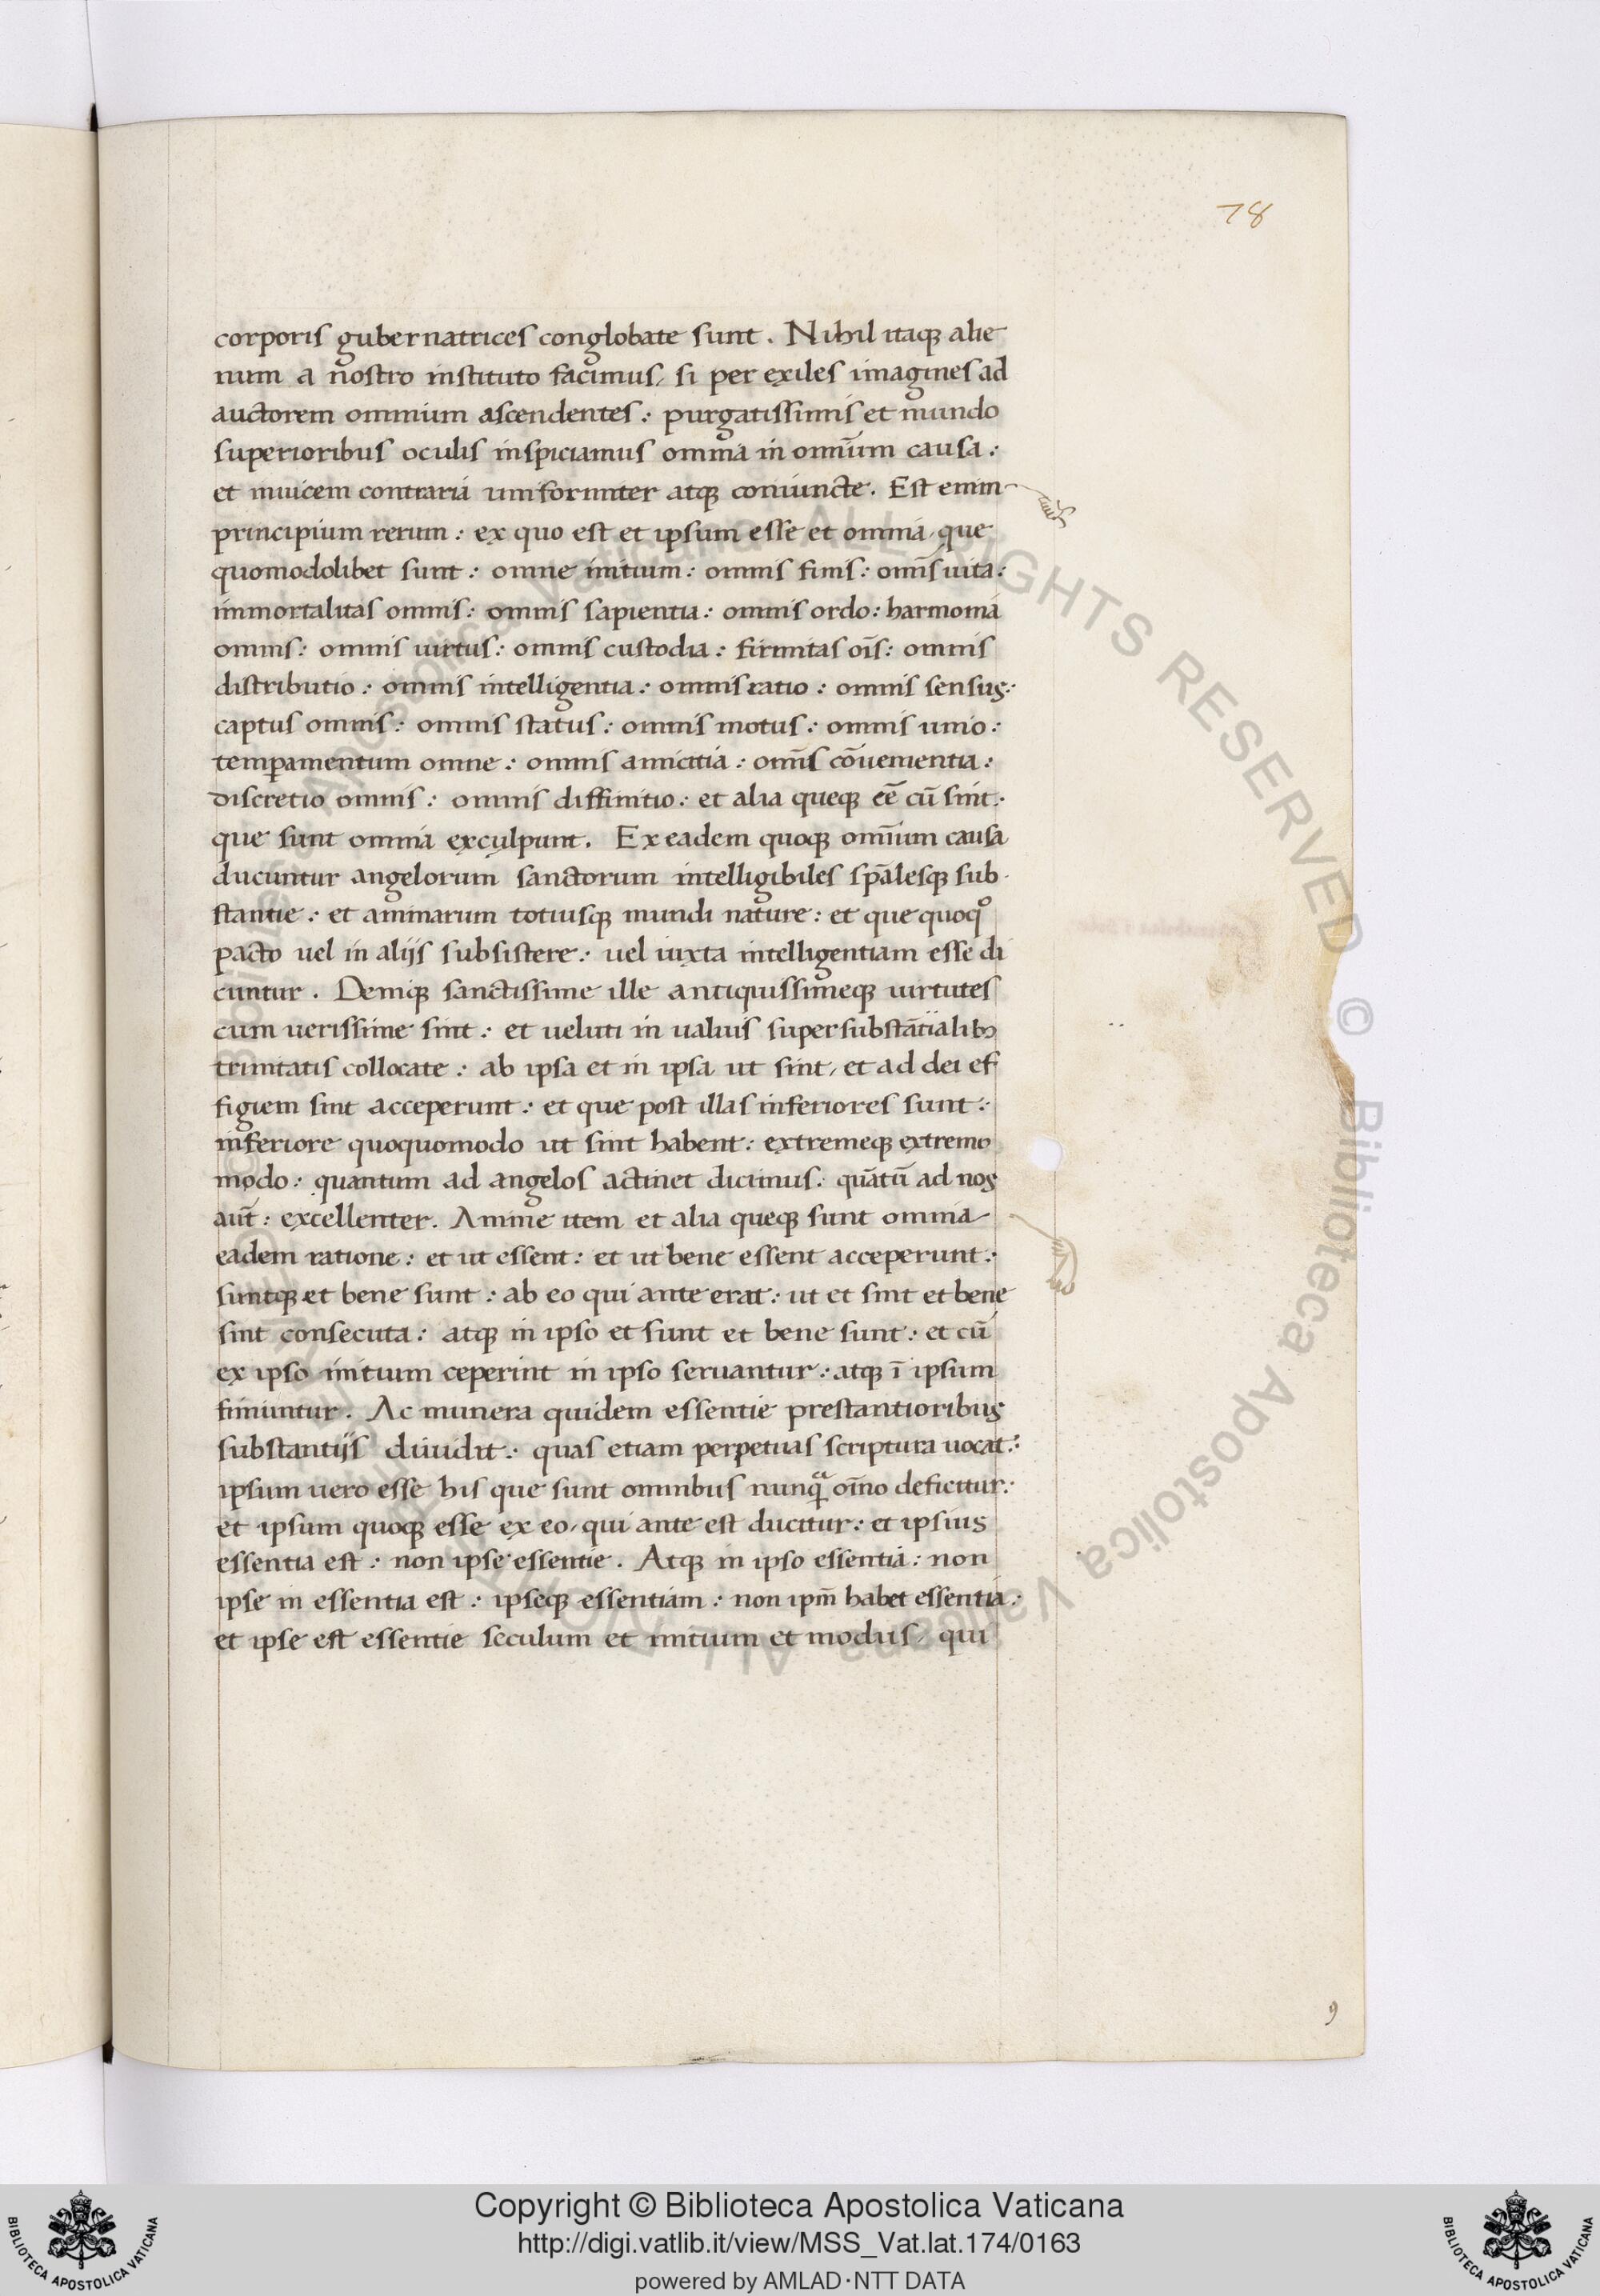 78
corporis gubernatrices conglobate sunt. Nihil itaq; alie
num a nostro instituto facimus, si per exiles imagines ad
auctorem omnium ascendentes: purgatissimis et mundo
superioribus oculis inspiciamus omnia in omniū causa:
et inuicem contraria uniformiter atq; coniuncte. Est enim
principium rerum: ex quo est et ipsum esse et omnia, que
quomodolibet sunt: omne initium: omnis finis: omīs uita:
immortalitas omnis: omnis sapientia: omnis ordo: harmonia
omnis: omnis uirtus: omnis custodia: firmitas oīs: omnis
distributio: omnis intelligentia: omnis ratio: omnis sensus:
captus omnis: omnis status: omnis motus: omnis unio:
temꝑamentum omne: omnis amicitia: omīs cōuenientia:
discretio omnis: omnis diffinitio: et alia queq; eē cū sint:
que sunt omnia exculpunt. Ex eadem quoq; omniū causa
ducuntur angelorum sanctorum intelligibiles sp̄alesq; sub
stantie: et animarum totiusq; mundi nature: et que quoqº
pacto uel in alijs subsistere: uel iuxta intelligentiam esse di
cuntur. Deniq; sanctissime ille antiquissimeq; uirtutes
cum uerissime sint: et ueluti in ualuis supersubstātialibꝫ
trinitatis collocate: ab ipsa et in ipsa ut sint, et ad dei ef
figiem sint acceperunt: et que post illas inferiores sunt:
inferiore quoquomodo ut sint habent: extremeq; extremo
modo: quantum ad angelos actinet dicimus: quātū ad nos
aut̄: excellenter. Anime item et alia queq; sunt omnia
eadem ratione: et ut essent: et ut bene essent acceperunt:
suntq; et bene sunt: ab eo qui ante erat: ut et sint et bene
sint consecuta: atq; in ipso et sunt et bene sunt: et cū
ex ipso initium ceperint in ipso seruantur: atq; ī ipsum
finiuntur. Ac munera quidem essentie prestantioribus
substantijs diuidit: quas etiam perpetuas scriptura uocat:
ipsum uero esse his que sunt omnibus nunqᵃ oīno deficitur:
et ipsum quoq; esse ex eo, qui ante est ducitur: et ipsius
essentia est: non ipse essentie. Atq; in ipso essentia: non
ipse in essentia est: ipseq; essentiam: non ipm̄ habet essentia:
et ipse est essentie seculum et initium et modus, qui
9
Copyright © Biblioteca Apostolica Vaticana
http://digi.vatlib.it/view/MSS_Vat.lat.174/0163
powered by AMLAD·NTT DATA
BIBLIOTECA APOSTOLICA VATICANA
BIBLIOTECA APOSTOLICA VATICANA